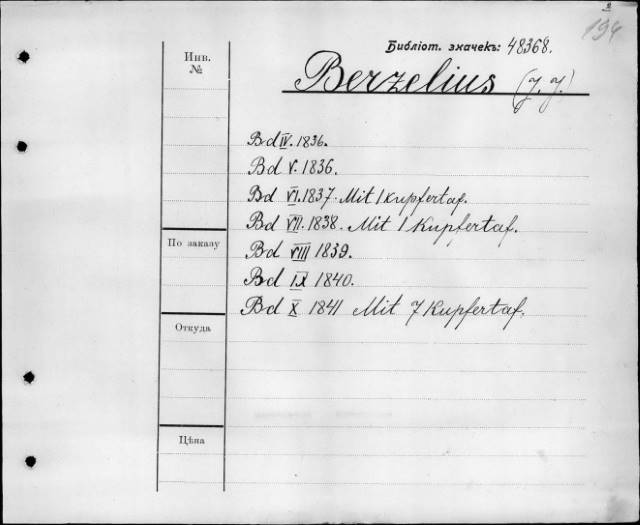 2
194
Библіот. значекъ: 48368.
Инв.
№
Berzelius (J. J.)
Bd IV. 1836.
Bd V. 1836.
Bd VI. 1837. Mit 1 Kupfertaf.
Bd VII. 1838. Mit 1 Kupfertaf.
По заказу
Bd VIII 1839.
Bd IX 1840.
Bd X 1841 Mit 7 Kupfertaf.
Откуда
Цѣна